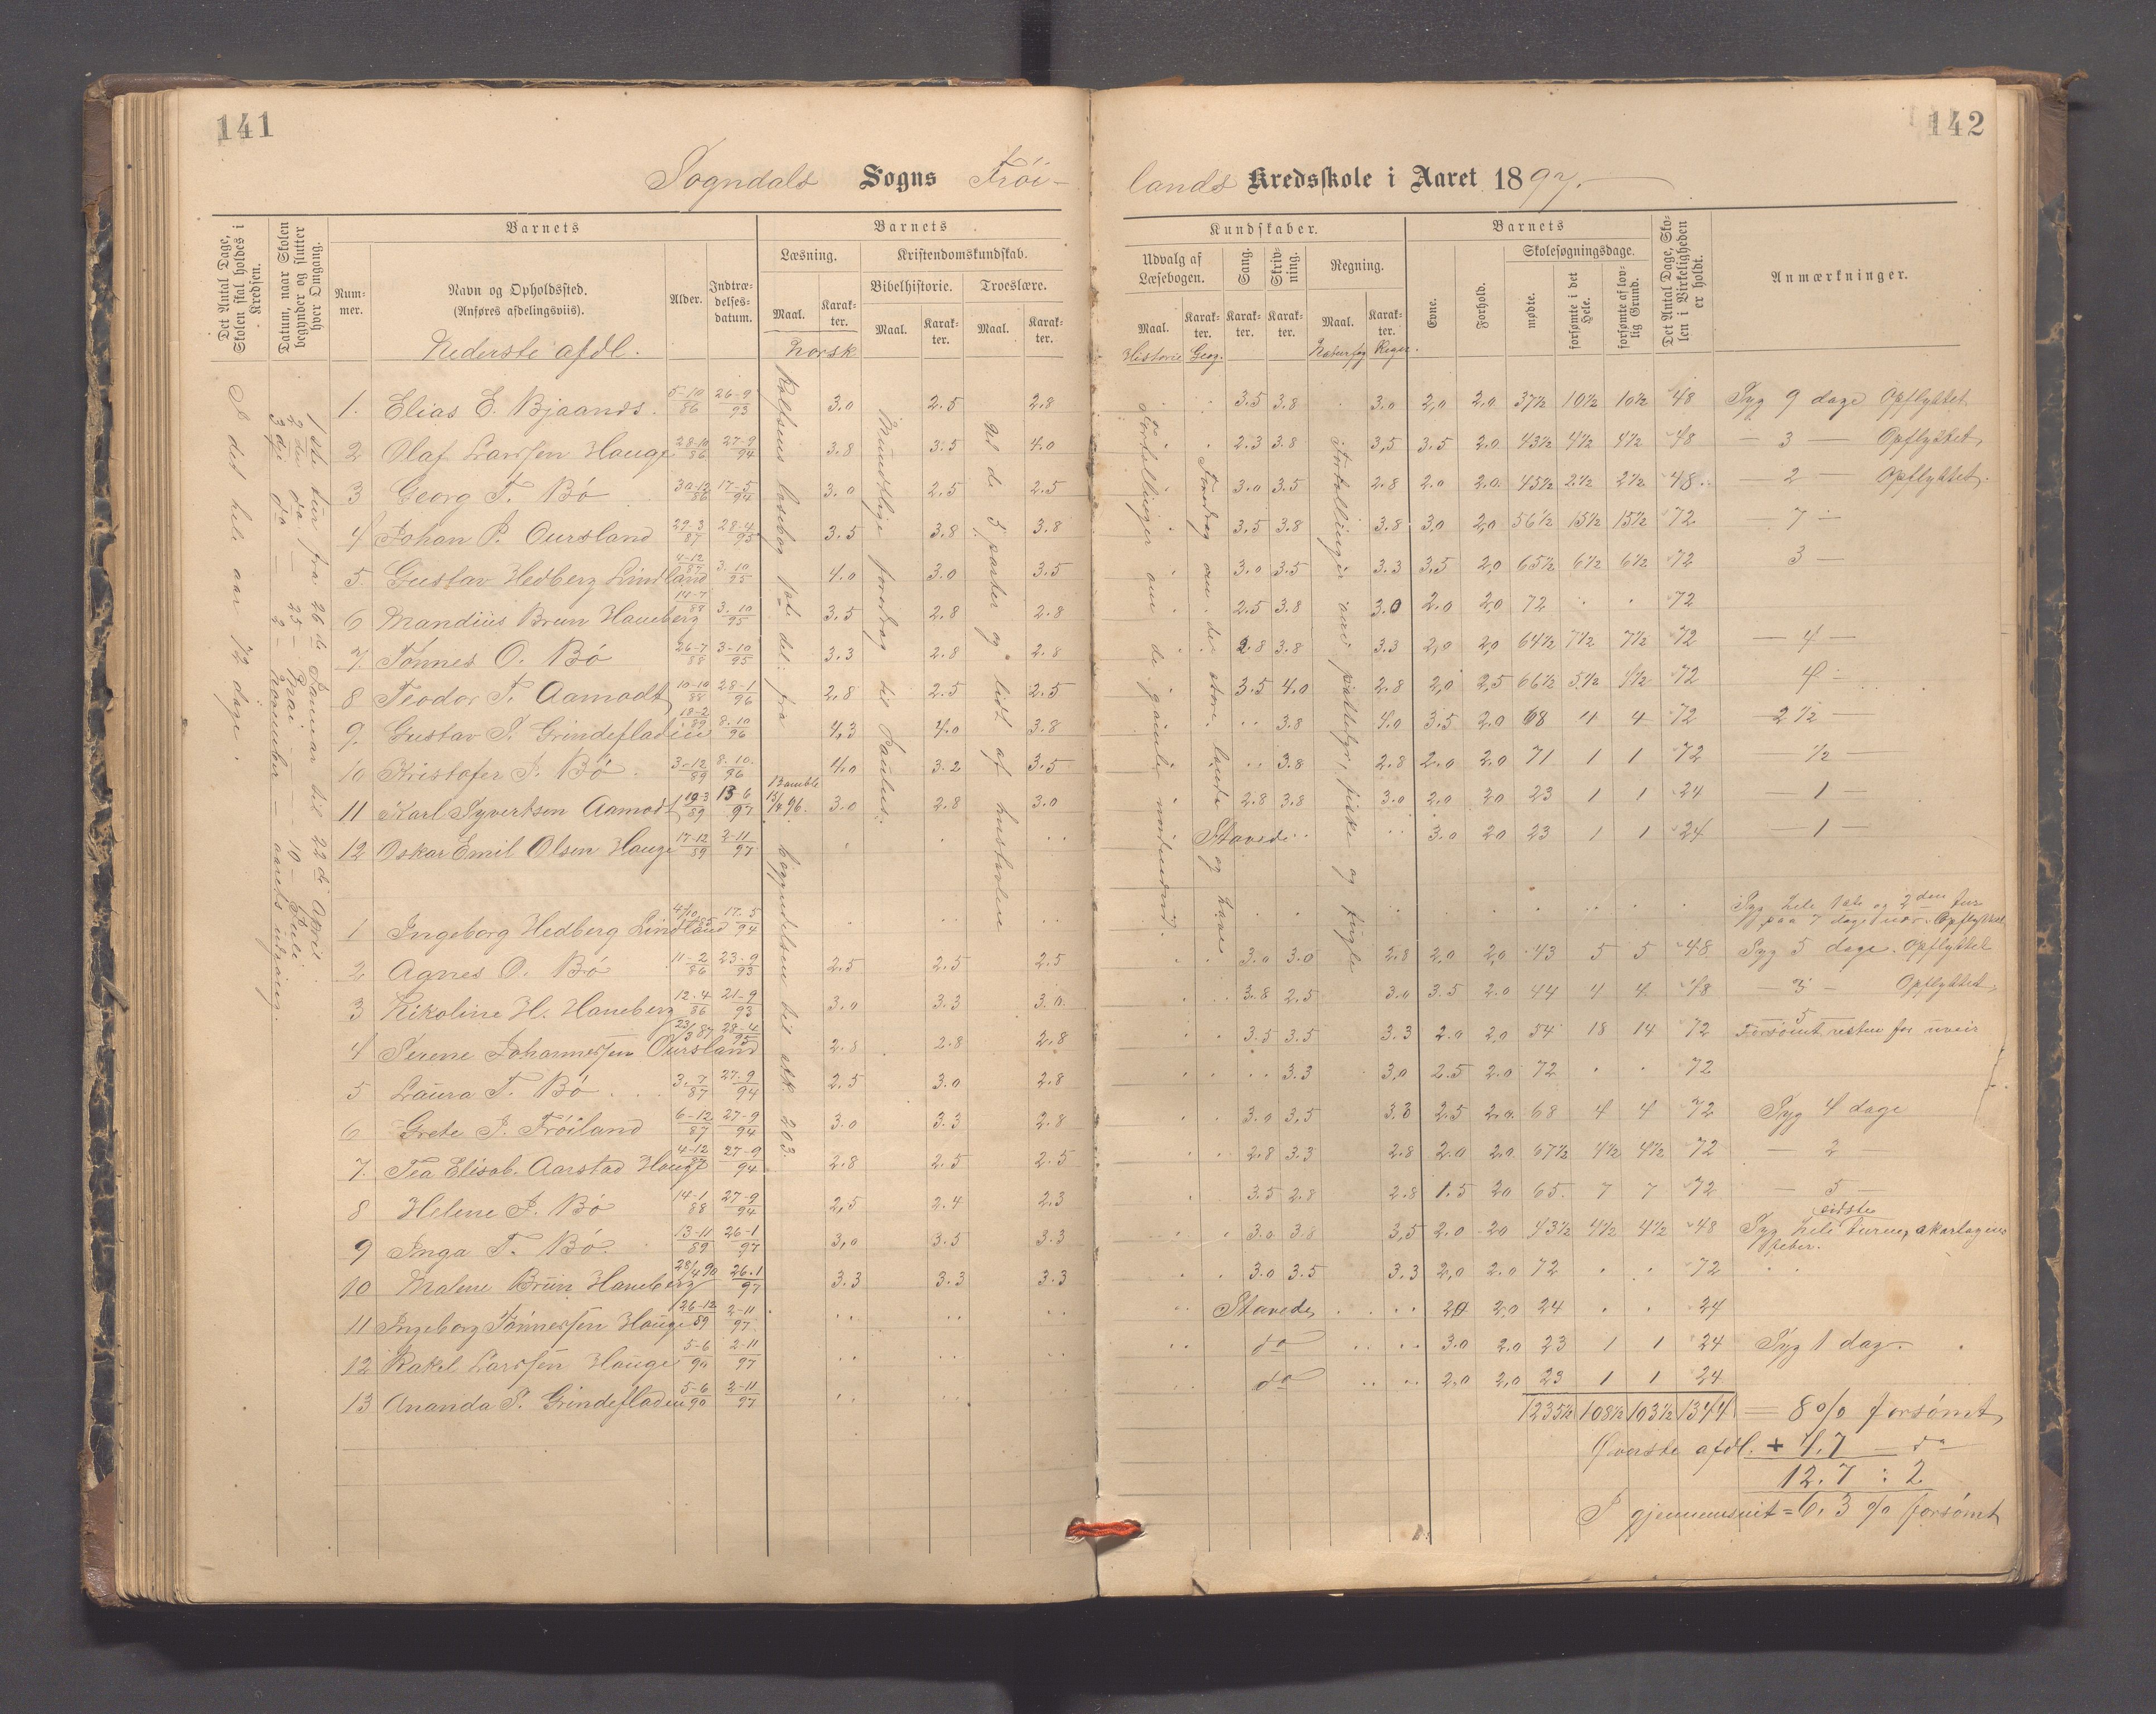 141
142
Sogndals Sogns Fröi-
lands Kredsskole i Aaret 1897.
Det Antal Dage, Skolen skal holdes i Kredsen.
Datum, naar Skolen begynder og slutter hver Omgang.
Barnets
Num-mer.
Navn og Opholdssted.
(Anføres afdelingsviis).
Nederste afdl.
Alder.
Indtræ-delses-datum.
Barnets
Læsning.
Maal.
Karak-ter.
Norsk
Kristendomskundskab.
Bibelhistorie.
Maal.
Karak-ter.
Troeslære.
Maal.
Karak-ter.
Kundskaber.
Udvalg af Læsebogen.
Maal.
Karak-ter.
Historie Geog.
Sang.
Karak-ter.
Skriv-ning.
Karak-ter.
Regning.
Maal.
Karak-ter.
Naturfag Regn.
Barnets
Evne.
Forhold.
Skolesøgningsdage.
mødte.
forsømte i det Hele.
forsømte af lov-lig Grund.
Det Antal Dage, Sko-len i Virkeligheden er holdt.
Anmærkninger.
I det hele aar 72 dage.
1ste tur fra 26de Januar til 22de April
2den do — 25 — Mai — 10 — Juli
3die do — 2 — November — aarets udgang.
Rolfsens læsebog 1ste del: fra begyndelsen til stk 203.
Mundtlige foredrag til Paulus.
til de 3 parter og lidt af hustavlen
Fortællinger om de gamle nordmænd.
Foredrag om de store lande og have
Fortællinger om pattedyr, fiske og fugle
1. Elias E. Bjaands. 5-10/86 26-9/93 3.0 2.5 2.8 3.5 3.8 3.0 2,0 2,0 37½ 10½ 10½ 48 Syg 9 dage Opflyttet
2 Olaf Larssen Hauge 28-10/86 27-9/94 3.8 3.5 4.0 2.3 3.8 3,5 3.5 2.0 43½ 4½ 4½ 48 — 3 — Opflyttet
3 Georg T. Bö 30-12/86 17-5/94 3.0 2.5 2.5 3.0 3.5 2.8 2.0 2.0 45½ 2½ 2½ 48 — 2 — Opflyttet.
4 Johan P. Oursland 29-3/87 28-4/95 3.5 3.8 3.8 3.5 3.8 3.8 3,0 2,0 56½ 15½ 15½ 72 — 7 —
5. Gustav Hedberg Lindland 4-12/87 3.10/95 4.0 3.0 3.5 3.0 3.5 3.3 3,5 2,0 65½ 6½ 6½ 72 3 —
6 Mandius Brun Haneberg 14-7/88 3.10/95 3,5 2.8 2.8 2.5 3.8 3.0 2.0 2,0 72 . . 72
7. Tönnes O. Bö 26-7/88 3-10/95 3.3 2.8 2.8 2.8 3.8 3.3 2,0 2,0 64½ 7½ 7½ 72 — 4 —
8 Teodor T. Aamodt 10-10/88 28-1/96 2.8 2.5 2.5 3.5 4.0 2.8 2,0 2,5 66½ 5½ 4½ 72 4 —
9. Gustav P. Grindefladen 18-2/89 8.10/96 4,3 4.0 3.8 3.8 4.0 3.5 2.0 68 4 4 72 — 2½ —
10 Kristofer J. Bö 3-12/89 8.10./96 4.0 3.2 3.5 3.8 2.8 2.0 2.0 71 1 1 72 — ½ —
11 Karl Syvertsen Aamodt 19-3/89 13-6/97 3.0 2.8 3.0 2.8 3.8 3.0 2.0 2.0 23 1 1 24 — 1 —
12 Oskar Emil Olsen Hauge 17-12/89 2-11/97 Stavede 3.0 2.0 23 1 1 24 — 1 —
1 Ingeborg Hedberg Lindland 4/10 85 17.5/94 Syg hele 1ste og 2den tur
paa 7 dage nær. Opflyttet
2 Agnes O. Bö 11-2/86 23-9/93 2.5 2.5 2.5 3.0 3.0 2.8 2,0 2,0 43 5 5 48 Syg 5 dage. Opflyttet
3 Nikoline H. Haneberg 12.4/86 21-9/93 3.0 3.3 3.0 3.8 2.5 3.0 3.5 2.0 44 4 4 48 — 3 — Opflyttet
4 Serene Johannessen Oursland 23/3 87 28-4/95 2.8 2.8 2.8 3.5 3.5 3.3 2.0 2,0 54 18 14 72 — 5 —
Forsömt resten for uveir
5 Laura T. Bö 3.7/87 27-9/94 2.5 3.0 2.8 3.3 3,0 2.5 2.0 72 . . 72
6 Grete J. Fröiland 6-12/87 27-9/94 3.0 3.3 2.8 3.0 3,5 3.3 2.5 2.0 68 4 4 72 Syg 4 dage
7. Tea Elisab. Aarstad Hauge 4-12/87 27-9/94 2.8 2.5 2.5 2.8 3.3 2.8 2.0 2.0 67½ 4½ 4½ 72 — 2 —
8 Helene J. Bö 14-1/88 27-9/94 2,5 2.4 2.3 3.5 2.8 2.8 1.5 2.0 65 7 7 72 — 5 —
9 Inga T. Bö. 13-11/89 26-1/97 3,0 3.5 3.3 3.0 3.8 3,5 2.0 2.0 43½ 4½ 4½ 48 Syg hele sidste turen, skarlagens
feber.
10 Malene Brun Haneberg 28/4 90 26.1/97 3.3 3.3 3.3 3.0 3.5 3.3 2,0 2.0 72 . . 72
11 Ingeborg Tönnessen Hauge 26-12/89 2-11/97 Stavede 2.0 2,0 24 . . 24
12 Rakel Larssen Hauge 5-6/90 2-11/97 do 3.0 2.0 23 1 1 24 Syg 1 dag.
13 Ananda P. Grindefladen 5-6/90 2-11/97 do 2.0 2,0 23 1 1 24
1235½ 108½ 103½ 1344 = 8% forsömt
Øverste afdl. + 4.7 — do —
12.7 : 2
I gjennemsnit = 6.3 % forsömt